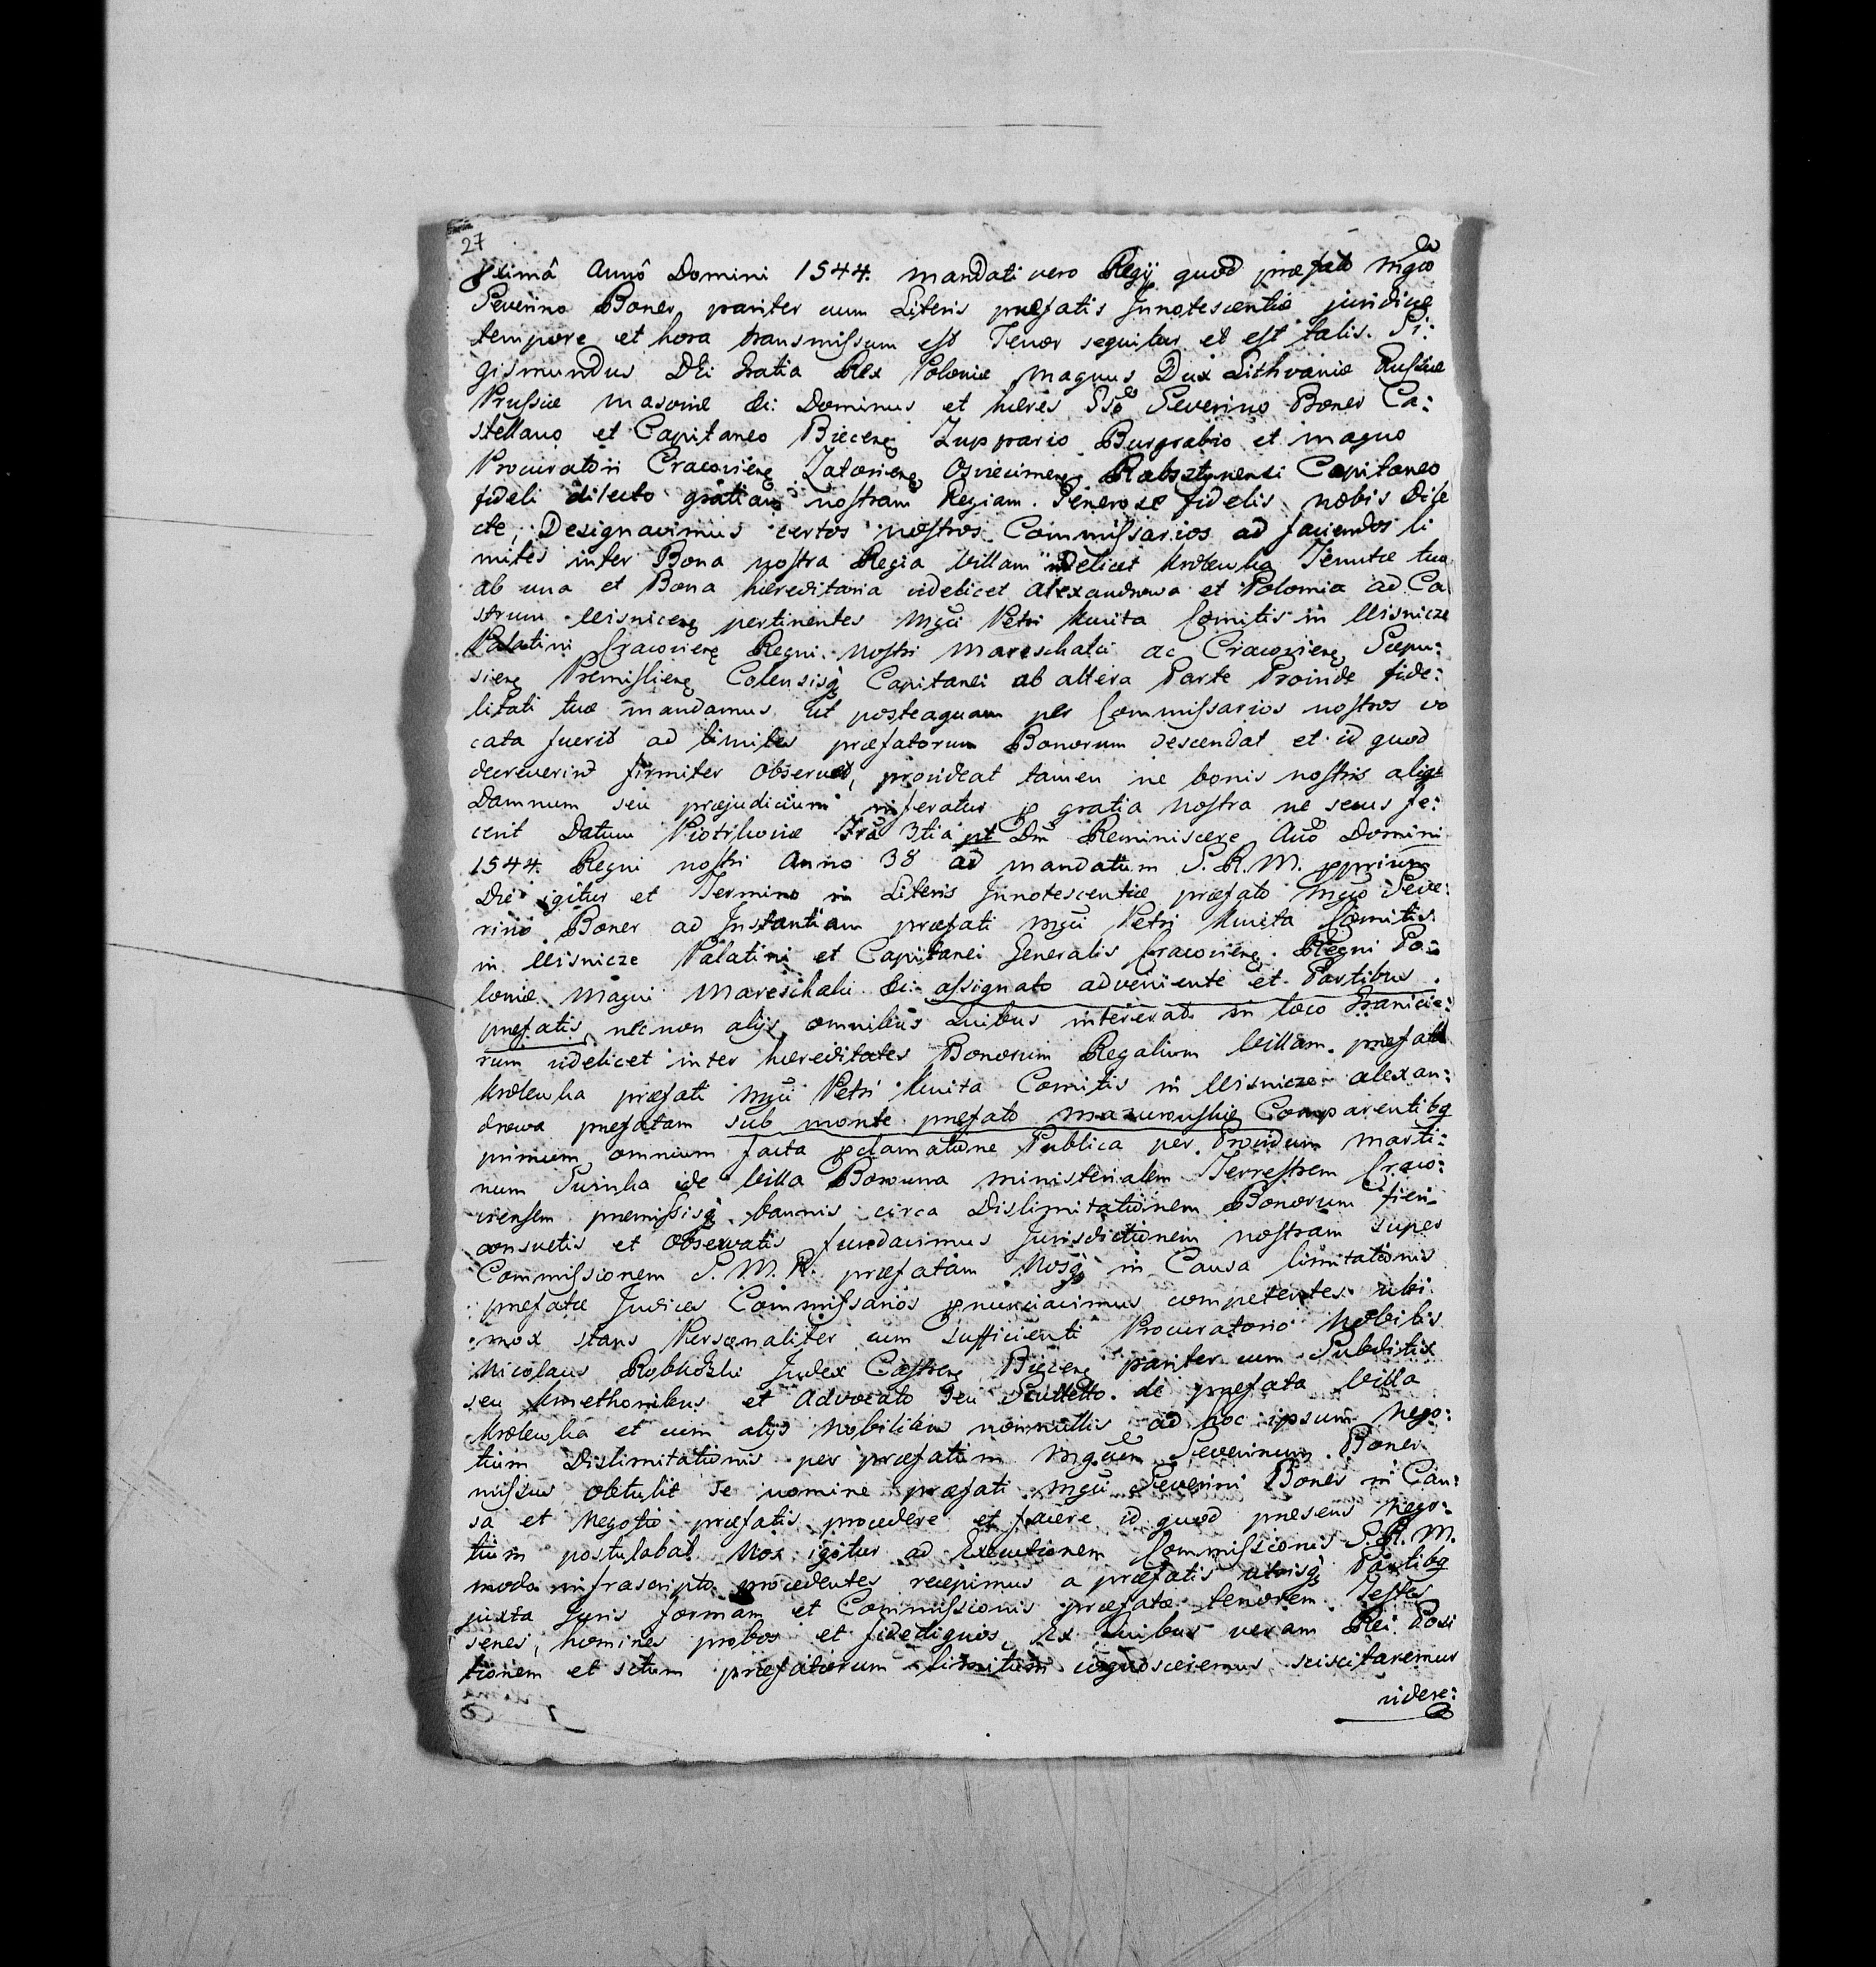 27
ximâ Annô Domini 1544. mandati vero Regij quod præfato Mgco
Severino Boner pariter cum Literis præfatis Innotescentiæ juridice
tempore et hora transmissum est Tenor sequitur et est talis. Si:
gismundus Dei Gratia Rex Poloniæ Magnus Dux Lithvaniæ Russiæ
Prussiæ Masoviæ &: Dominus et hæres Gso Severino Boner Ca:
stellano et Capitaneo Biecenę Zuppario Burgrabio et magno
Procuratori Cracovienę Zatorienę Osviecimenę Rabsztynensi Capitaneo
fideli dilecto gratiam nostram Regiam. Generose fidelis nobis Dile
cte, Designavimus certos nostros Commissarios ad faciendos li
mites inter Bona nostra Regia Villam videlicet Krolewka Tenutæ tuæ
ab una et Bona hæreditaria videlicet Alexandrowa et Polomia ad Ca
strum Wisnicenę pertinentes Mgci Petri Kmita Comitis in Wisnicze
Palatini Cracovienę Regni nostri Mareschalci ac Cracovienę Scepu:
sienę Premislienę Colensisq Capitanei ab altera Parte Proinde fide:
litati tuæ mandamus ut posteaquam per Commissarios nostros vo
cata fuerit ad limites præfatorum Bonorum descendat et id quod
decreverint firmiter observet, provideat tamen ne bonis nostris aliqd
Damnum seu præjudicium inferatur p gratia nostra ne secus fe:
cerit Datum Piotrkoviæ Fra 3tia pt Dm Reminiscere Ano Domini
1544. Regni nostri Anno 38 ad mandatum S. R. M. pprium
Die igitur et Termino in Literis Innotescentiæ præfato Mgco Seve:
rino Boner ad Instantiam præfati Mgci Petri Kmita Comitis
in Wisnicze Palatini et Capitanei Generalis Cracovienę. Regni Po:
loniæ Magni Mareschalci &: assignato adveniente et Partibus
præfatis, nec non alijs omnibus quibus intererat in loco Granicie:
rum videlicet inter hæreditates Bonorum Regalium Villam præfata
Krolewka præfati Mgci Petri Kmita Comitis in Wisnicze Alexan:
drowa præfatam sub monte præfato Mazurowskię Comparentibq
primum omnium facta pclamatione Publica per Providum Marti:
num Surnka de Villa Borowna Ministerialem Terrestrem Craco:
viensem præmissisq bannis circa Dislimitationem Bonorum fieri
consuetis et observatis fundavimus Jurisdictionem nostram super
Commissionem S. M. R. præfatam Nosq in Causa limitationis
præfatæ Judices Commissarios pnunciavimus competentes ubi
mox stans Personaliter cum sufficienti Procuratorio Nobilis
Nicolaus Judex Castrenę Biecenę pariter cum Subditis
seu Kmethonibus et Advocato seu Scultetto de præfata Villa
Krolewka et cum alijs Nobilibus nonnullis ad hoc ipsum Nego:
tium Dislimitationis per præfatum Mgcum Severinum Boner
missus obtulit se nomine præfati Mgci Severini Boner in Cau:
sa et Negotio præfatis procedere et facere id quod præsens Nego:
tium postulabat Mox igitur ad Executionem Commissionis S. R. M.
modo infrascripto procedentes recepimus a præfatis utrisq Partibq
juxta Juris formam et Commissionis præfatæ tenorem Testes
senes, homines probos et fidedignos, Ex Quibus veram Rei Posi
tionem et situm præfatorum limitum cognosceremus sciscitaremur
videre: